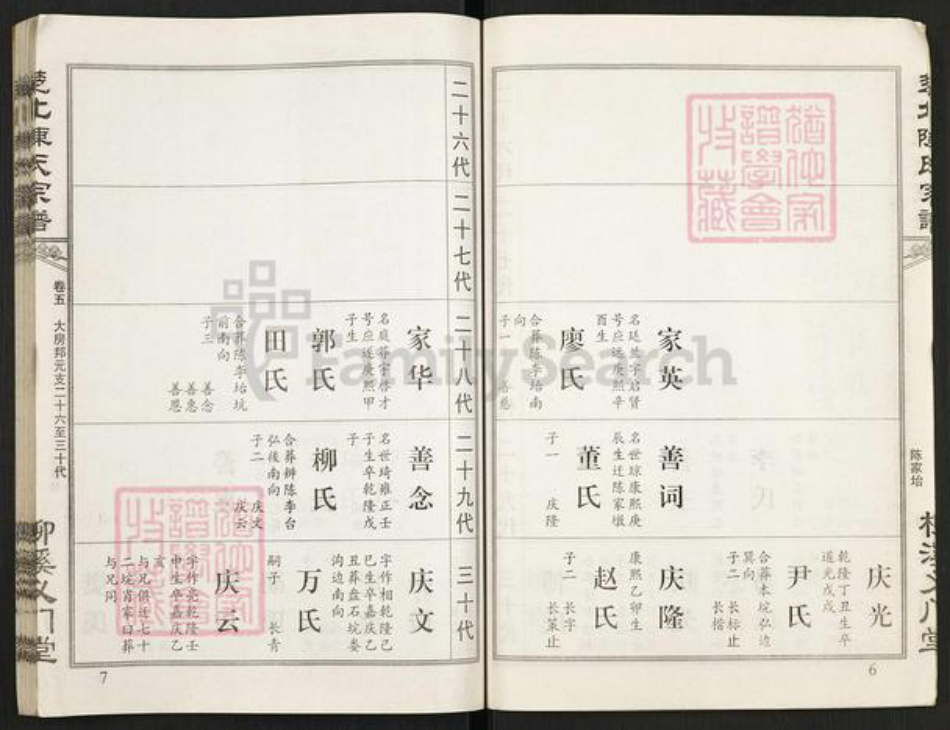 楚北陳氏宗譜
陈家坮
柳溪义门堂
6
庆光
乾隆丁丑生卒
道光戊戌
尹氏
合葬本垸弘边
巽向
子二 长标止
长楷
家英
名廷兰字启贤
号应远康熙辛
酉生
廖氏
合葬陈李坮南
向
子一
善词
名世琼康熙庚
辰生迁陈家墩
董氏
子一 庆隆
庆隆
康熙乙卯生
赵氏
子二 长字
长策止
二十六代
二十七代
二十八代
二十九代
三十代
家华
名庭葬字啓才
号应远康熙甲
子生
郭氏
田氏
合葬陈李坮坑
前南向
子三 善念
善惠
善恩
善念
名世琦雍正壬
子生卒乾隆戊
子
柳氏
合葬辦陈李台
弘後南向
子二 庆文
庆云
庆文
字作相乾隆己
巳生卒嘉庆乙
丑葬盘石坑娄
沟边南向
万氏
嗣子 长青
庆云
字作亮乾隆壬
申生卒嘉庆乙
亥
与兄俱迁七十
二垸肖家曰葬
与兄同
楚北陳氏宗譜
卷五 大房邦元支二十六至三十代
柳溪义门堂
7
FamilySearch